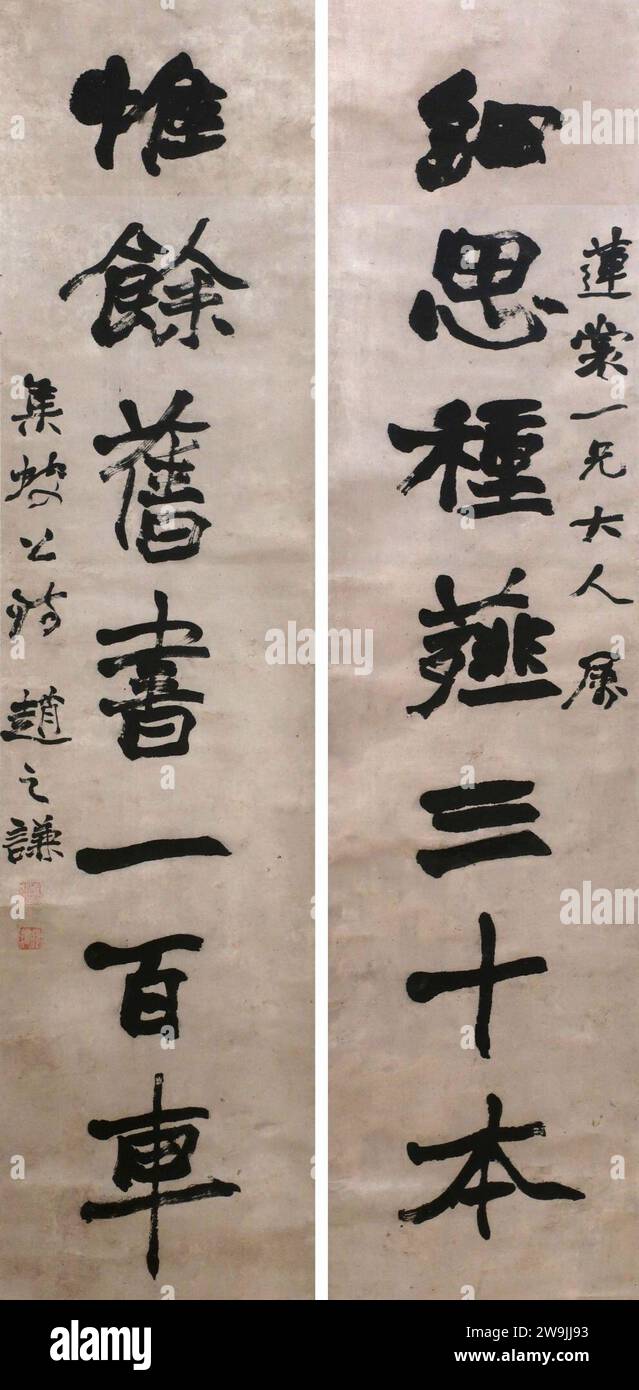 蓮裳一兄大人屬
細思種薤三十本
惟餘舊書一百車
集坡公詩 趙之謙
alamy
Image ID: W29JJ93
www.alamy.com